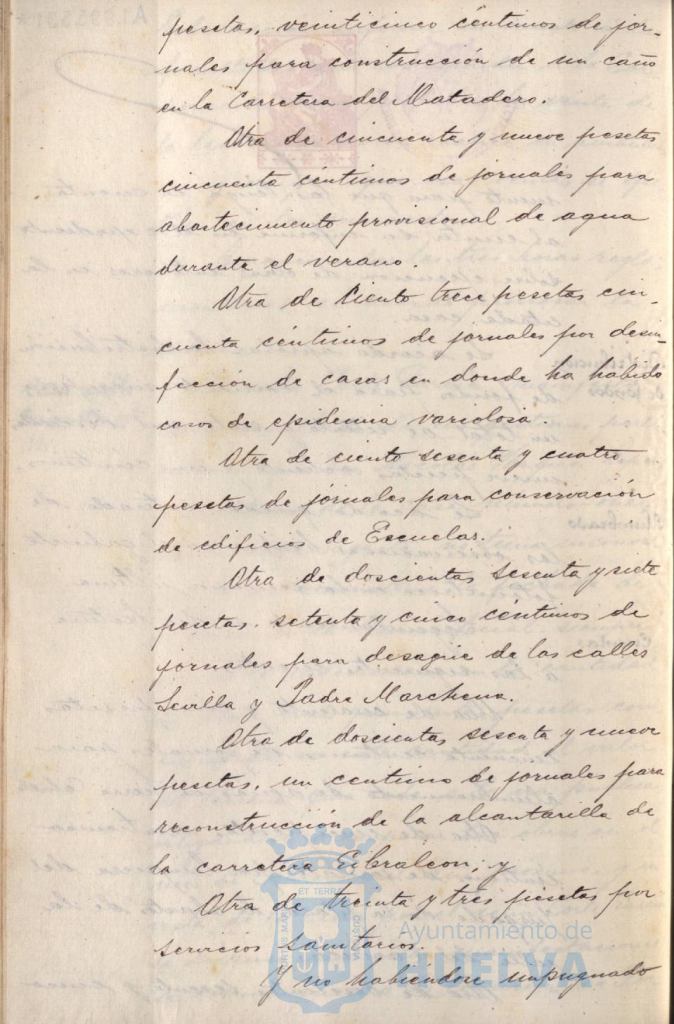 pesetas, veinticinco céntimos de jor-
nales para construcción de un caño
en la Carretera del Matadero.
Otra de cincuenta y nueve pesetas
cincuenta centimos de jornales para
abastecimiento provisional de agua
durante el verano.
Otra de Ciento trece pesetas cin-
cuenta céntimos de jornales por desin-
fección de casas en donde ha habido
casos de epidemia variolosa.
Otra de ciento sesenta y cuatro
pesetas de jornales para conservación
de edificios de Escuelas.
Otra de doscientas sesenta y siete
pesetas. setenta y cinco céntimos de
jornales para desagüe de las calles
Sevilla y Padre Marchena.
Otra de doscientas sesenta y nueve
pesetas, un centimo de jornales para
reconstrucción de la alcantarilla de
la carretera Gibraleon; y
Otra de treinta y tres pesetas por
servicios sanitarios.
Y no habiéndose impugnado
Ayuntamiento de
HUELVA